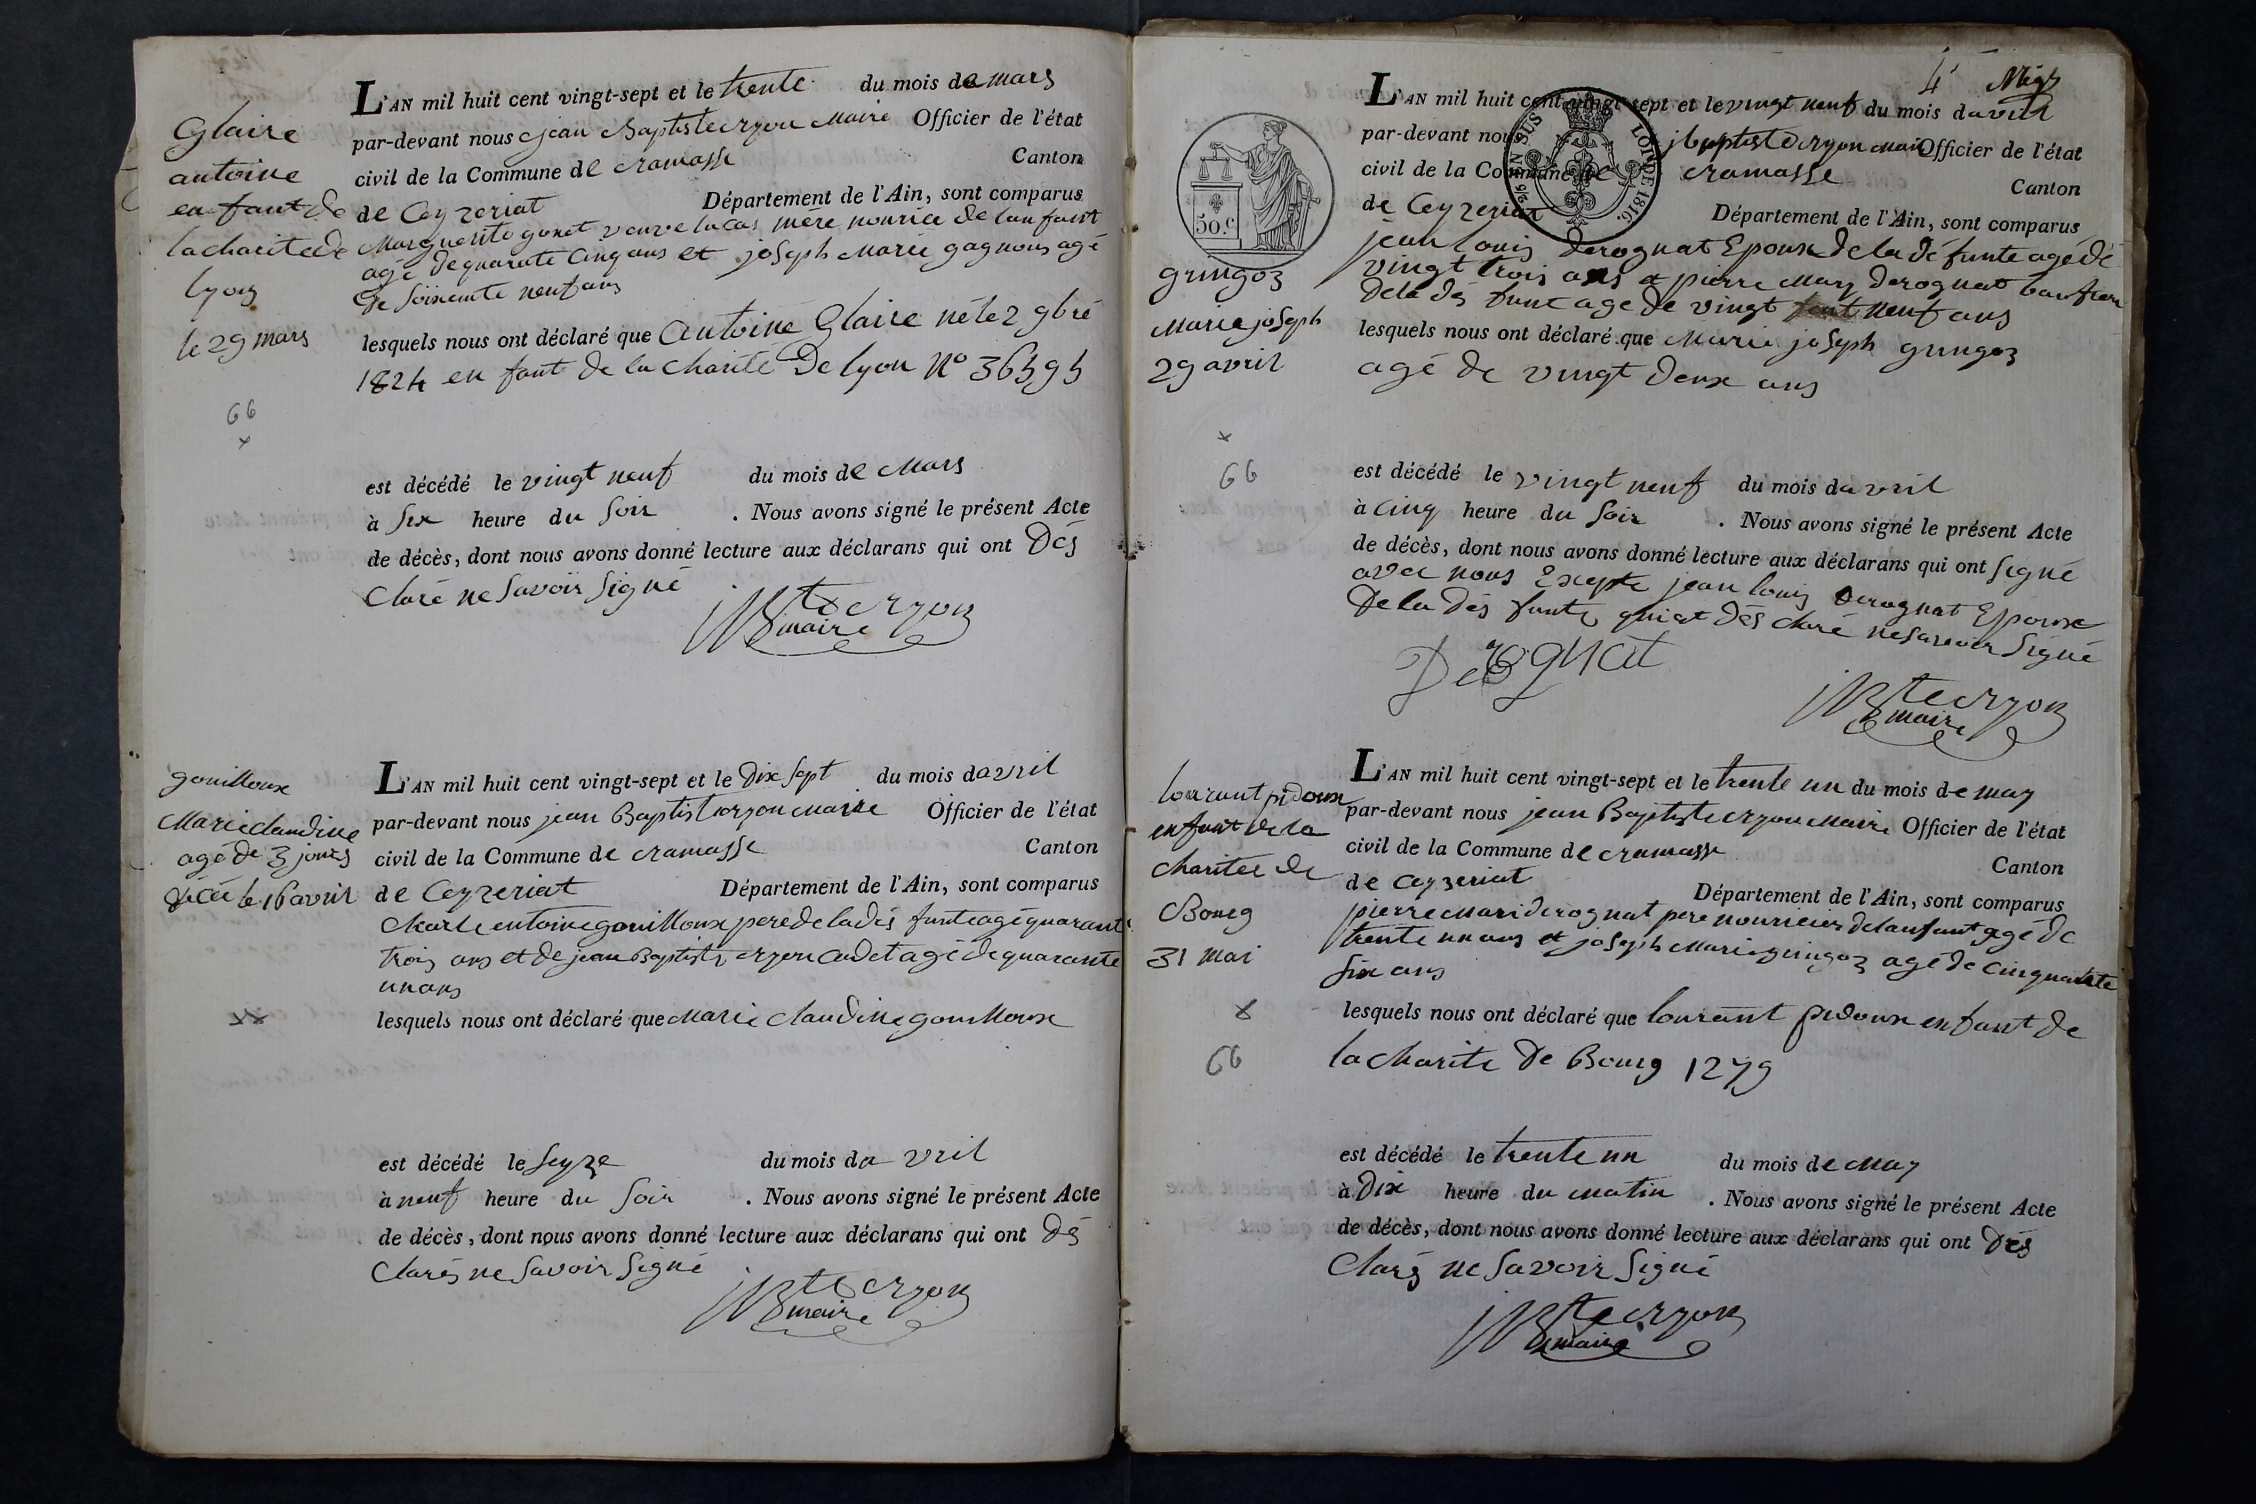 Glaire
antoine
enfant de
la charite de
lyon
le 29 mars
66
L'AN mil huit cent vingt-sept et le trente du mois de mars
par-devant nous jean Baptiste cryon Maire Officier de l'état
civil de la Commune de cramasse Canton
de Ceyzeriat Département de l'Ain, sont comparus
Marguerite gonet veuve lucas mere nourice de lanfant
agé de quarante cinq ans et joseph Marie gagnon agé
de soixente neuf ans
lesquels nous ont déclaré que antoine Glaire né le 2 9bre
1824 en fant de la charité De lyon N° 36595
est décédé le vingt neuf du mois de Mars
à six heure du soir . Nous avons signé le présent Acte
de décès, dont nous avons donné lecture aux déclarans qui ont Dés
Claré ne savoir signé
JBte cryon
maire
gouilloux
Marie claudine
agé de 3 jours
décéé le 16 avril
L'AN mil huit cent vingt-sept et le Dix sept du mois davril
par-devant nous jean Baptist cryon maire Officier de l'état
civil de la Commune de cramasse Canton
de Ceyzeriat Département de l'Ain, sont comparus
Charle entoine gouilloux pere de la dés funte agé quarante
trois ans et de jean Baptiste cryon cadet agé de quarante
un ans
lesquels nous ont déclaré que Marie Claudine gouilloux
est décédé le seyze du mois da vril
à neuf heure du soir . Nous avons signé le présent Acte
de décès, dont nous avons donné lecture aux déclarans qui ont dé
Clarés ne savoir signé
JBte cryon
maire
4
EN SUS LOI DE 1816.
50.c
gringoz
Marie joseph
29 avril
66
L'AN mil huit cent vingt-sept et le vingt neuf du mois davril
par-devant nous jbaptiste cryon maire Officier de l'état
civil de la Commune de cramasse Canton
de Ceyzeriat Département de l'Ain, sont comparus
jean louis derognat Epoux de la dé funte agé dé
vingt trois ans et pierre Mary derognat bau frere
de la dés funte age de vingt neuf ans
lesquels nous ont déclaré que Marie joseph gringoz
agé de vingt deux ans
est décédé le vingt neuf du mois davril
à cinq heure du soir . Nous avons signé le présent Acte
de décès, dont nous avons donné lecture aux déclarans qui ont signé
avec nous Excepte jean louis Derognat Epoux
De la dés funte qui at dés claré ne savoir signé
Derognat
JBte cryon
maire
lourant pidoux
enfant de la
charitee de
Bourg
31 mai
66
L'AN mil huit cent vingt-sept et le trente un du mois de may
par-devant nous jean Baptiste cryon Maire Officier de l'état
civil de la Commune de cramasse Canton
de Ceyzeriat Département de l'Ain, sont comparus
pierre Mari derognat pere nouricier de lanfant agé de
trente un ans et joseph Marie gringoz agé de cinquante
six ans
lesquels nous ont déclaré que lourant pidoux enfant de
la charite de Bourg 1279
est décédé le trente un du mois de May
à Dix heure du matin . Nous avons signé le présent Acte
de décès, dont nous avons donné lecture aux déclarans qui ont Dés
Clarés ne savoir signé
JBte cryon
maire